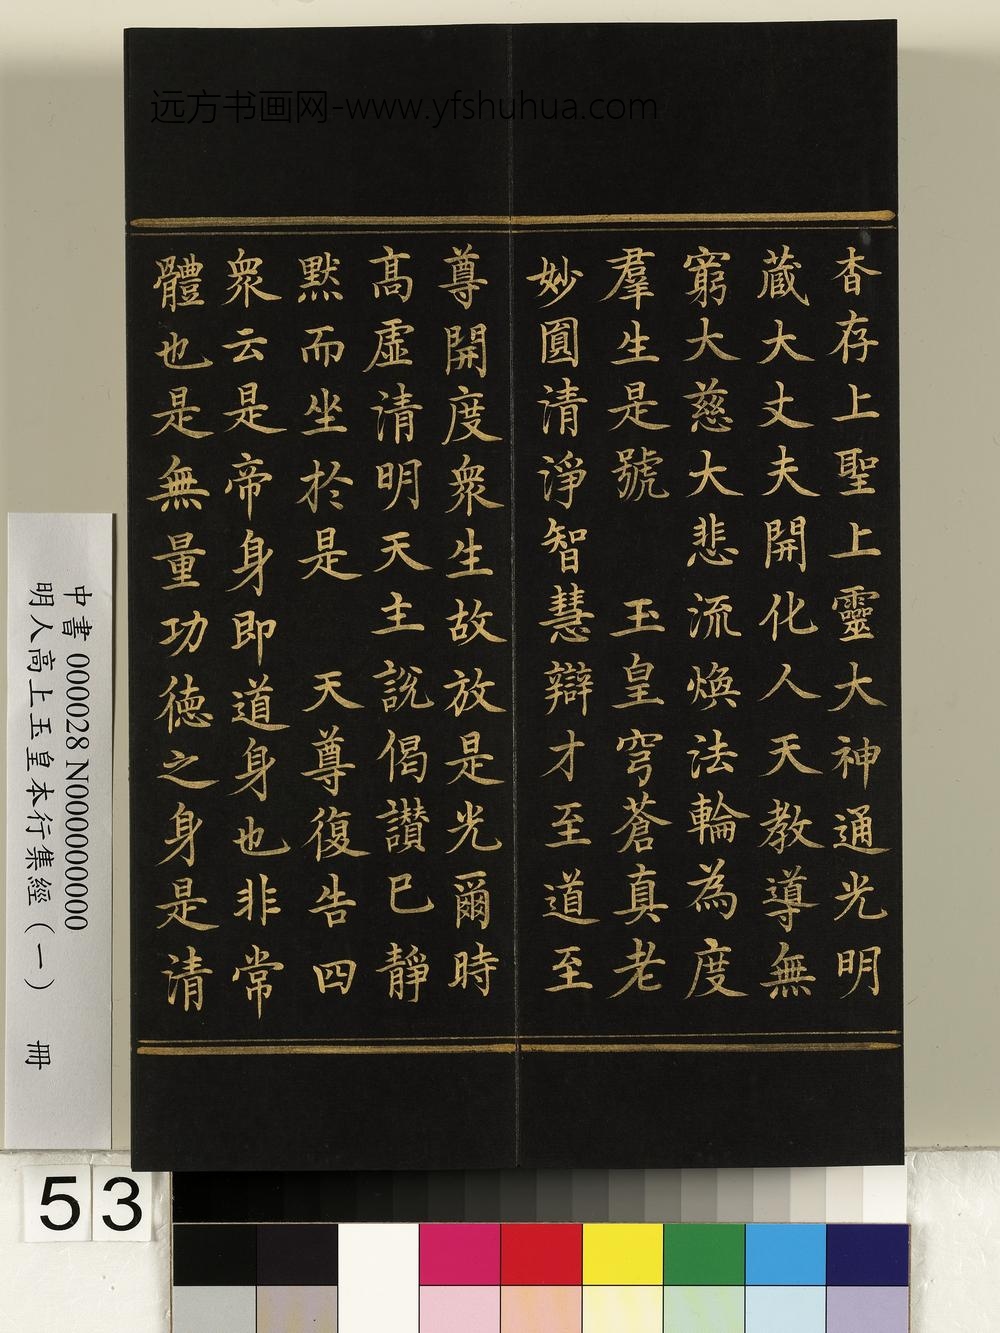 远方书画网-www.yfshuhua.com
杳存上聖上靈大神通光明
蔵大丈夫開化人天教導無
窮大慈大悲流煥法輪為度
羣生是號 玉皇穹蒼真老
妙圓清淨智慧辯才至道至
尊開度衆生故放是光爾時
高虛清明天主說偈讃已靜
默而坐於是 天尊復告四
衆云是帝身即道身也非常
體也是無量功德之身是清
中書 000028 N000000000
明人高上玉皇本行集經(一) 冊
53